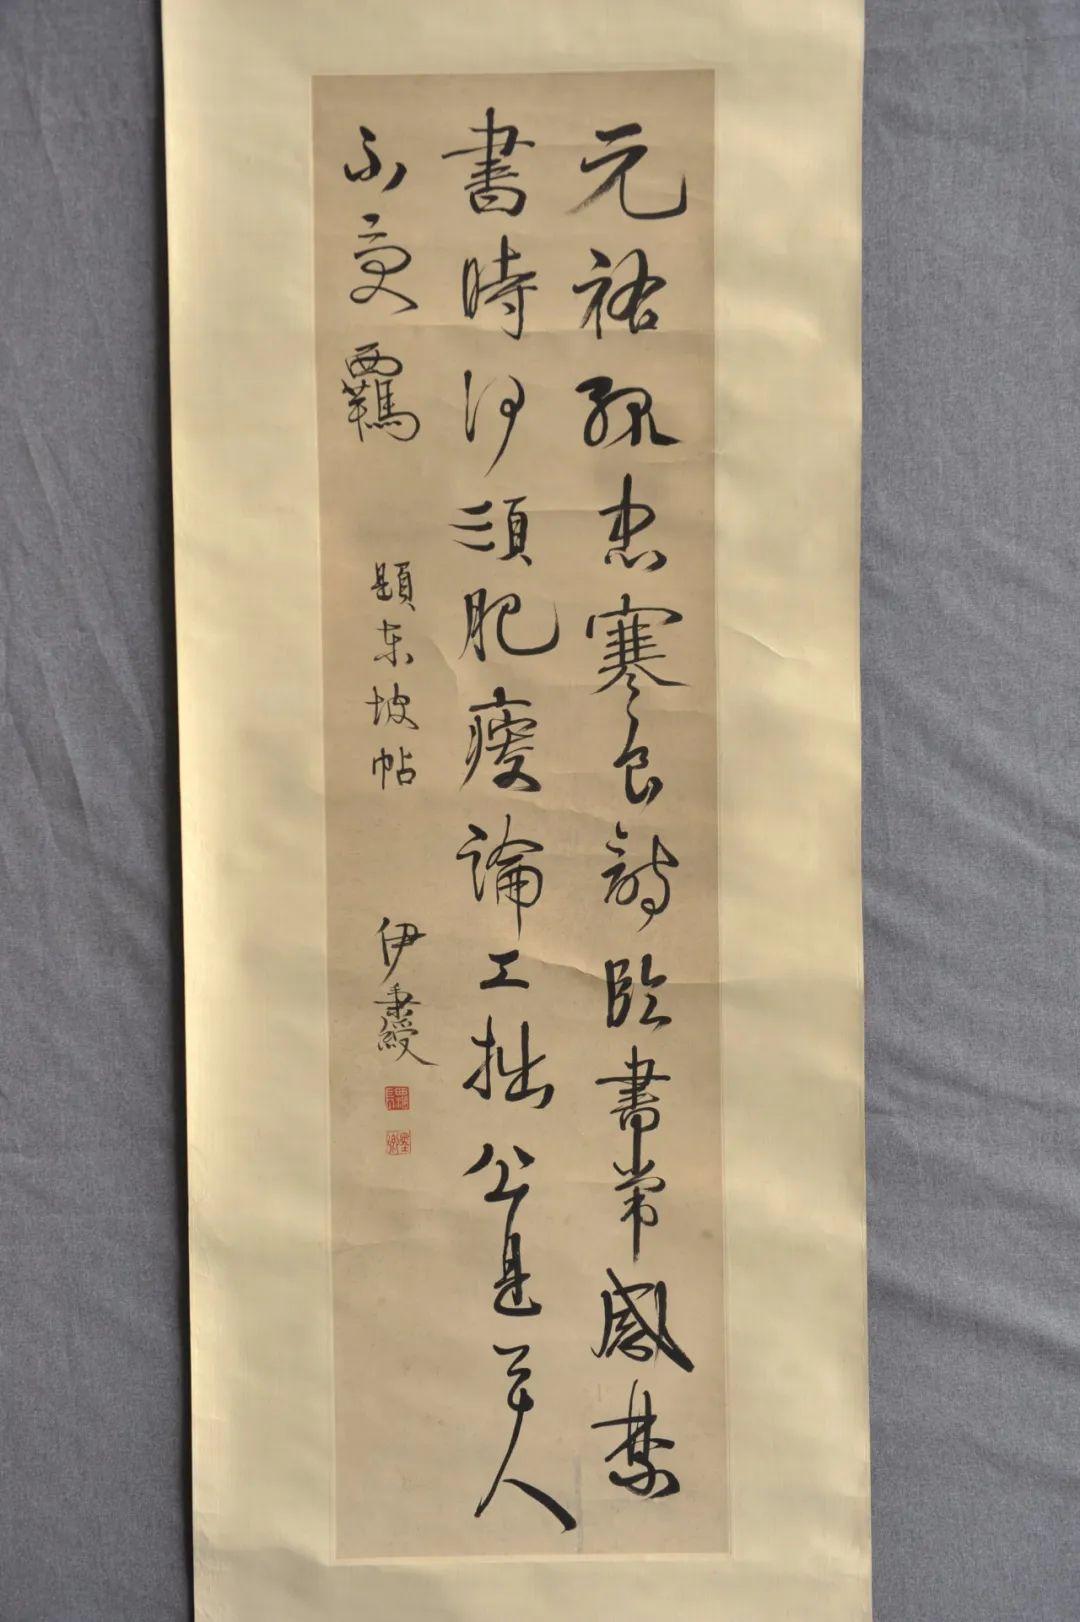 元祐孤忠寒食詩臨書常感禁
書時何須肥瘦論工拙公是天人
不受羈
題東坡帖
伊秉綬